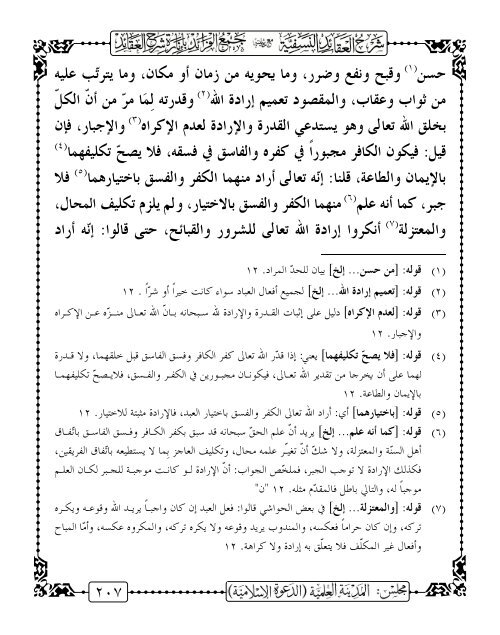 شرح العقائد النسفية مع جمع الفرائد بإنارة شرح العقائد
حسن(١) وقبح ونفع وضرر، وما يحويه من زمان أو مكان، وما يترتّب عليه
من ثواب وعقاب، والمقصود تعميم إرادة الله(٢) وقدرته لِمَا مرّ من أنّ الكلّ
بخلق الله تعالى وهو يستدعي القدرة والإرادة لعدم الإكراه(٣) والإجبار، فإن
قيل: فيكون الكافر مجبوراً في كفره والفاسق في فسقه، فلا يصحّ تكليفهما(٤)
بالإيمان والطاعة، قلنا: إنّه تعالى أراد منهما الكفر والفسق باختيارهما(٥) فلا
جبر، كما أنه علم(٦) منهما الكفر والفسق بالاختيار، ولم يلزم تكليف المحال،
والمعتزلة(٧) أنكروا إرادة الله تعالى للشرور والقبائح، حتى قالوا: إنّه أراد
(١) قوله: [من حسن... إلخ] بيان للحدّ المراد. ١٢
(٢) قوله: [تعميم إرادة الله... إلخ] لجميع أفعال العباد سواء كانت خيراً أو شرًّا . ١٢
(٣) قوله: [لعدم الإكراه] دليل على إثبات القدرة والإرادة لله سبحانه بـأنّ الله تعـالى منـزّه عـن الإكـراه
والإجبار. ١٢
(٤) قوله: [فلا يصحّ تكليفهما] يعني: إذا قدّر الله تعالى كفر الكافر وفسق الفاسق قبل خلقهما، ولا قـدرة
لهما على أن يخرجا من تقدير الله تعـالى، فيكونـان مجبـورين في الكفـر والفسـق، فلايصـحّ تكليفهمـا
بالإيمان والطاعة. ١٢
(٥) قوله: [باختيارهما] أي: أراد الله تعالى الكفر والفسق باختيار العبد، فالإرادة مثبتة للاختيار. ١٢
(٦) قوله: [كما أنه علم... إلخ] يريد أنّ علم الحقّ سبحانه قد سبق بكفر الكـافر وفسـق الفاسـق باتّفـاق
أهل السنّة والمعتزلة، ولا شكّ أنّ تغيّـر علمه محال، وتكليف العاجز بما لا يستطيعه باتّفاق الفريقين،
فكذلك الإرادة لا توجب الجبر، فملخّص الجواب: أنّ الإرادة لـو كانـت موجبـة للجبـر لكـان العلـم
موجباً له، والتالي باطل فالمقدّم مثله. ١٢ "ن"
(٧) قوله: [والمعتزلة... إلخ] في بعض الحواشي قالوا: فعل العبد إن كان واجبـاً يريـد الله وقوعـه ويكـره
تركه، وإن كان حراماً فعكسه، والمندوب يريد وقوعه ولا يكره تركه، والمكروه عكسه، وأمّا المباح
وأفعال غير المكلّف فلا يتعلّق به إرادة ولا كراهة. ١٢
مجلس: المدينة العلمية (الدعوة الإسلامية)
٢٠٧